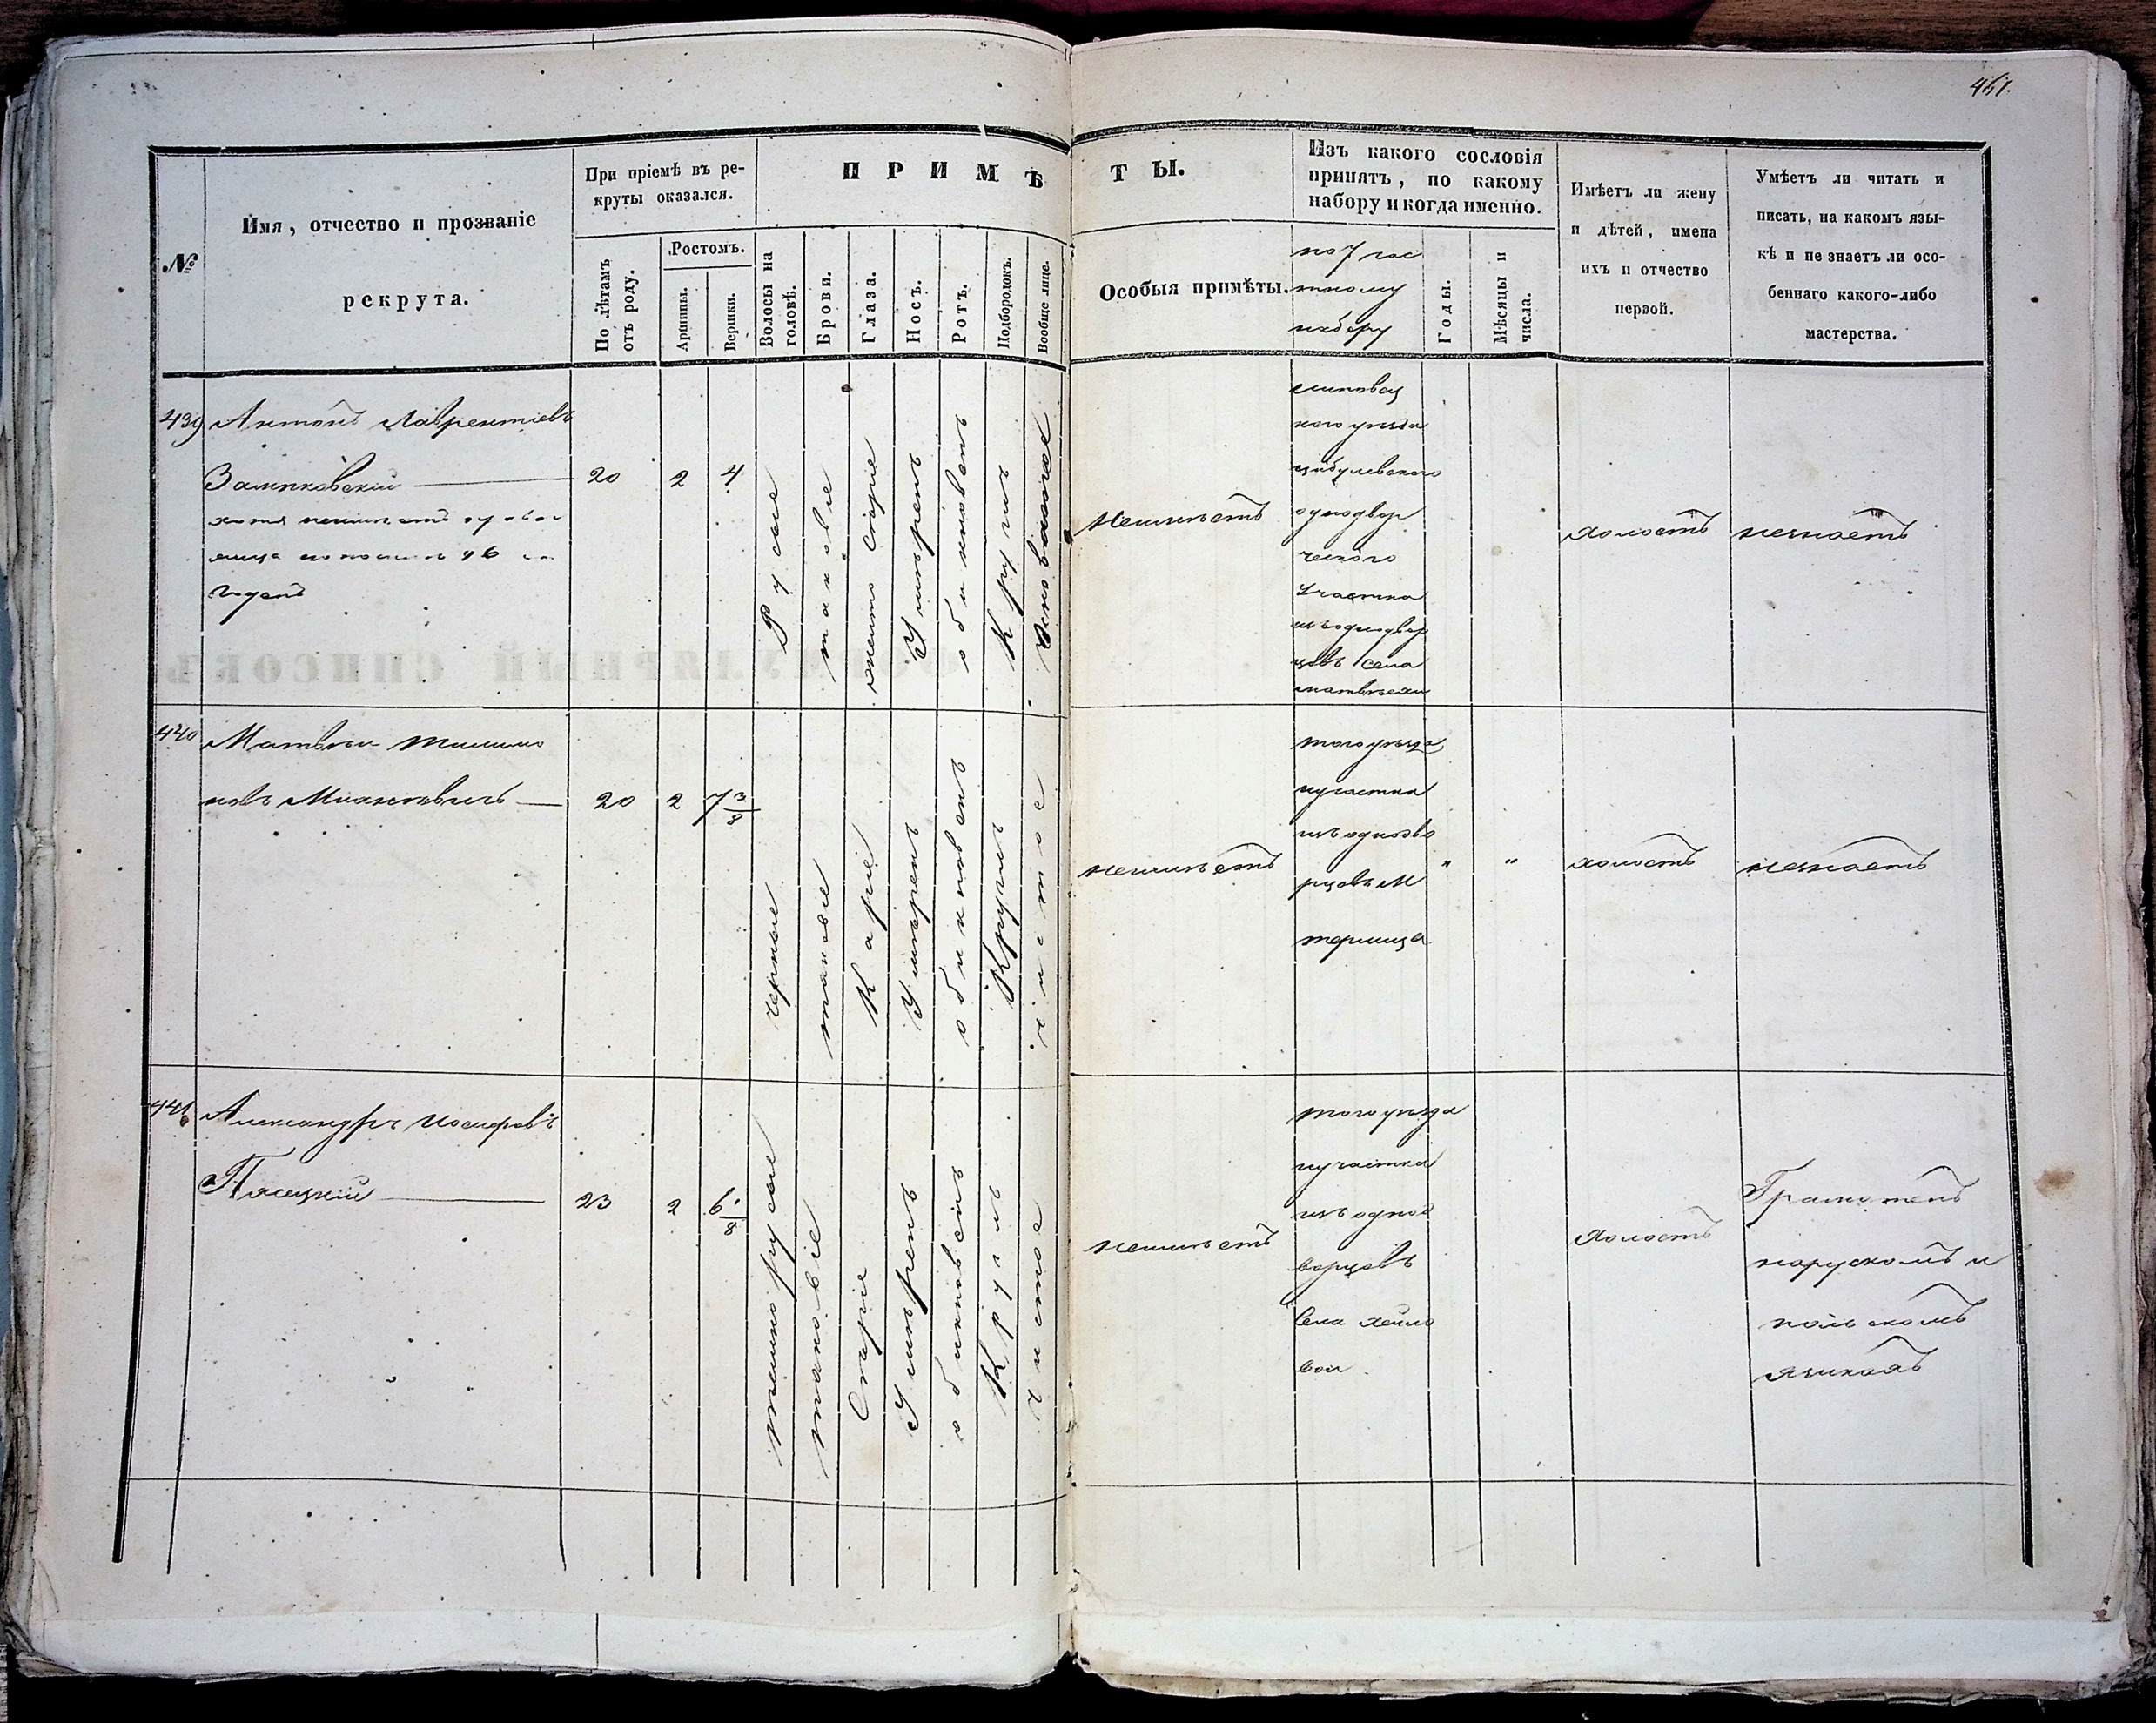 461.
№
Имя, отчество и прозваніе
рекрута.
При пріемѣ въ ре-
круты оказался.
По лѣтамъ
отъ роду.
Ростомъ.
Аршины.
Вершки.
ПРИМѢТЫ.
Волосы на
головѣ.
Брови.
Глаза.
Носъ.
Ротъ.
Подбородокъ.
Вообще лице.
Особыя примѣты.
Изъ какого сословія
принятъ, по какому
набору и когда именно.
по 7 час
тному
набору
Годы.
Мѣсяцы и
числа.
Имѣетъ ли жену
и дѣтей, имена
ихъ и отчество
первой.
Умѣетъ ли читать и
писать, на какомъ язы-
кѣ и не знаетъ ли осо-
беннаго какого-либо
мастерства.
439
Антонъ Лаврентіевъ
20
2
4
Русые
таковые
Умѣренъ
обикновенъ
Круглъ
Неимѣетъ
липовец
кого уѣзда
цибулевского
однодвор
ческого
участка
изъ однодвор
цовъ села
холостъ
незнаетъ
440
20
2
7 3/8
черные
таковые
Каріе
Умѣренъ
обикновенъ
Круглъ
чистое
неимѣетъ
того уѣзда
иучастка
изъ однодво
рцовъ м
"
"
холостъ
незнаетъ
441
Александръ Иосифовъ
23
2
темнорусые
таковіе
Сѣріе
Умѣренъ
обикновенъ
Круглъ
чистое
неимѣетъ
того уѣзда
иучастка
изъ однод
ворцовъ
села
холостъ
Грамотенъ
нарускомъ и
польскомъ
язикахъ